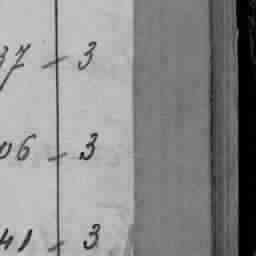 37 - 3
06 - 3
41 - 3